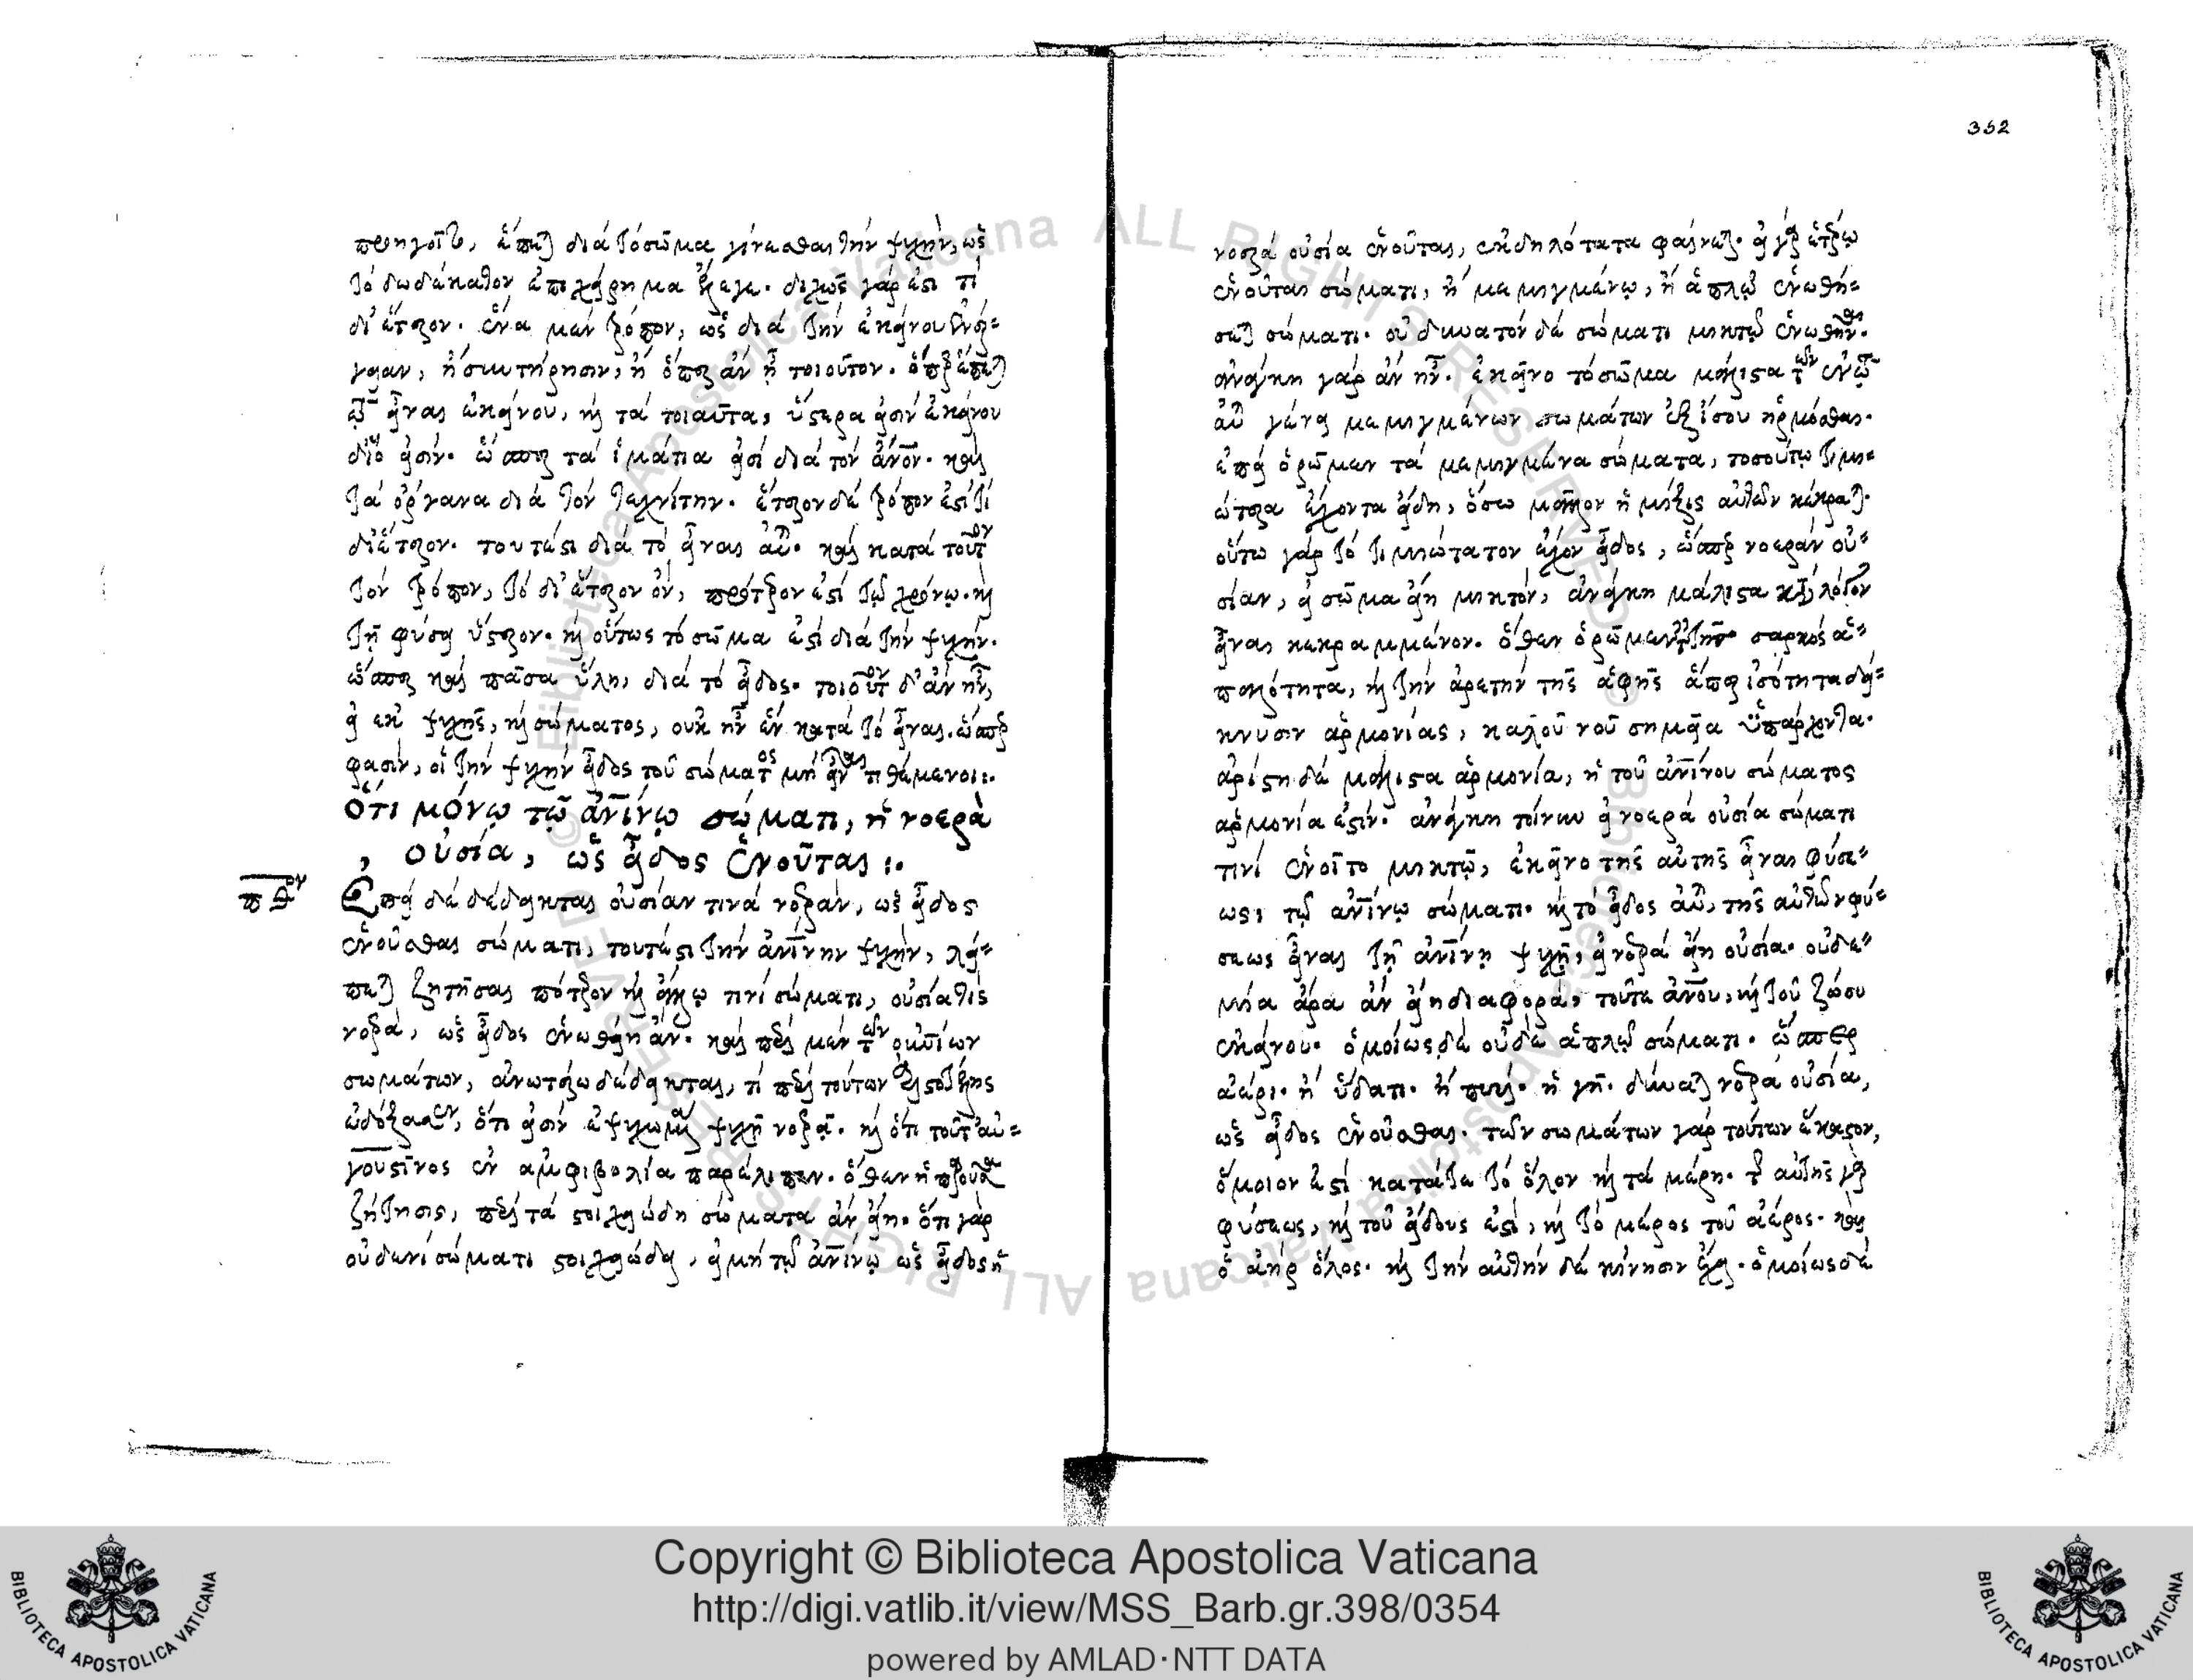 προηγοῖτο, ἕπεται διὰ τὸ σῶμα γίνεσθαι τὴν ψυχὴν, ὡς
τὸ δωδέκατον ἐπιχείρημα ἔλεγε. διχῶς γάρ ἐστι τὶ
δι' ἕτερον. ἕνα μὲν τρόπον, ὡς διὰ τὴν ἐκείνου ἐνέρ=
γειαν, ἢ συντήρησιν, ἢ ὅπερ ἂν ᾖ τοιοῦτον. ὅπερ ἕπεται
τῷ εἶναι ἐκείνου, καὶ τὰ τοιαῦτα, ὕστερα εἰσὶν ἐκείνου
δι' ὃ εἰσίν. ὥσπερ τὰ ἱμάτια εἰσὶ διὰ τὸν ἄνον. καὶ
τὰ ὄργανα διὰ τὸν τεχνίτην. ἕτερον δὲ τρόπον ἐστί τι
δι' ἕτερον. τουτέστι διὰ τὸ εἶναι αὐτοῦ. καὶ κατὰ τοῦτον
τὸν τρόπον, τὸ δι' ἕτερον ὂν, πρότερον ἐστὶ τῷ χρόνῳ. καὶ
τῇ φύσει ὕστερον. καὶ οὕτως τὸ σῶμα ἐστὶ διὰ τὴν ψυχήν.
ὥσπερ καὶ πᾶσα ὕλη, διὰ τὸ εἶδος. τοιοῦτον δ' ἂν ἦν,
εἰ ἐκ ψυχῆς, καὶ σώματος, οὐκ ἦν ἓν κατὰ τὸ εἶναι. ὥσπερ
φασὶν, οἱ τὴν ψυχὴν εἶδος τοῦ σώματος μὴ εἶναι τιθέμενοι:.
Ὅτι μόνῳ τῷ ἀνίνῳ σώματι, ἡ νοερὰ
οὐσία, ὡς εἶδος ἑνοῦται:.
Ἐπεὶ δὲ δέδεικται οὐσίαν τινὰ νοερὰν, ὡς εἶδος
ἑνοῦσθαι σώματι, τουτέστι τὴν ἀνίνην ψυχὴν, λεί=
πεται ζητῆσαι πότερον καὶ ἄλλῳ τινὶ σώματι, οὐσία τὶς
νοερὰ, ὡς εἶδος ἑνωθείη ἄν. καὶ περὶ μὲν τῶν οὐνίων
σωμάτων, ἀνωτέρω δέδεικται, τί περὶ τούτων ἀριστοτέλης
ἐδόξασεν, ὅτι εἰσὶν ἐψυχωμένα ψυχῇ νοερᾷ. καὶ ὅτι τοῦτ' αὐ=
γουστῖνος ἐν ἀμφιβολία παρέλιπεν. ὅθεν ἡ παροῦσα
ζήτησις, περὶ τὰ στοιχειώδη σώματα ἂν εἴη. ὅτι γὰρ
οὐδενὶ σώματι στοιχειώδει, εἰ μὴ τῷ ἀνίνῳ ὡς εἶδος ἡ
352
νοερὰ οὐσία ἑνοῦται, ἐκδηλότατα φαίνεται. εἰ γὰρ ἑτέρῳ
ἑνοῦται σώματι, ἢ μεμιγμένῳ, ἢ ἁπλῷ ἑνωθή=
σεται σώματι. οὐ δυνατὸν δὲ σώματι μικτῷ ἑνωθῆναι.
ἀνάγκη γὰρ ἂν ἦν. ἐκεῖνο τὸ σῶμα μάλιστα τῶν ἐν τῷ
αὐτοῦ γένει μεμιγμένων σωμάτων ἐξίσου ἡρμόσθαι.
ἐπεὶ ὁρῶμεν τὰ μεμιγμένα σώματα, τοσούτῳ τιμι=
ώτερα ἔχοντα εἴδη, ὅσω μᾶλλον ἡ μίξις αὐτῶν κέκραται.
οὕτω γὰρ τὸ τιμιώτατον ἔχον εἶδος, ὥσπερ νοερὰν οὐ=
σίαν, εἰ σῶμα εἴη μικτὸν, ἀνάγκη μάλιστα
εἶναι κεκραμμένον. ὅθεν ὁρῶμεν τὴν τῆς σαρκὸς ἁ=
παλότητα, καὶ τὴν ἀρετὴν τῆς ἁφῆς ἅπερ ἰσότητα δεί=
κνυσιν ἁρμονίας, καλοῦ νοῦ σημεῖα ὑπάρχοντα.
ἀρίστη δὲ μάλιστα ἁρμονία, ἡ τοῦ ἀνίνου σώματος
ἁρμονία ἐστίν. ἀνάγκη τοίνυν εἰ νοερὰ οὐσία σώματι
τινὶ ἑνοῖτο μικτῷ, ἐκεῖνο τῆς αὐτῆς εἶναι φύσε=
ως, τῷ ἀνίνῳ σώματι. καὶ τὸ εἶδος αὐτοῦ, τῆς αὐτῆς φύ=
σεως εἶναι τῇ ἀνίνῃ ψυχῇ, εἰ νοερὰ εἴη οὐσία. οὐδε=
μία ἄρα ἂν εἴη διαφορὰ, τοῦτε ἄνου, καὶ τοῦ ζώου
ἐκείνου. ὁμοίως δὲ οὐδὲ ἁπλῷ σώματι. ὥσπερ
ἀέρι. ἢ ὕδατι. ἢ πυρὶ. ἢ γῇ. δύναται νοερὰ οὐσία,
ὡς εἶδος ἑνοῦσθαι. τῶν σωμάτων γὰρ τούτων ἕκαστον,
ὅμοιον ἐστὶ κατά τε τὸ ὅλον καὶ τὰ μέρη. τῆς αὐτῆς γὰρ
φύσεως, καὶ τοῦ εἴδους ἐστὶ, καὶ τὸ μέρος τοῦ ἀέρος. καὶ
ὁ ἀὴρ ὅλος. καὶ τὴν αὐτὴν δὲ κίνησιν ἔχει. ὁμοίως δὲ
Copyright © Biblioteca Apostolica Vaticana
http://digi.vatlib.it/view/MSS_Barb.gr.398/0354
powered by AMLAD·NTT DATA
BIBLIOTECA APOSTOLICA VATICANA
BIBLIOTECA APOSTOLICA VATICANA